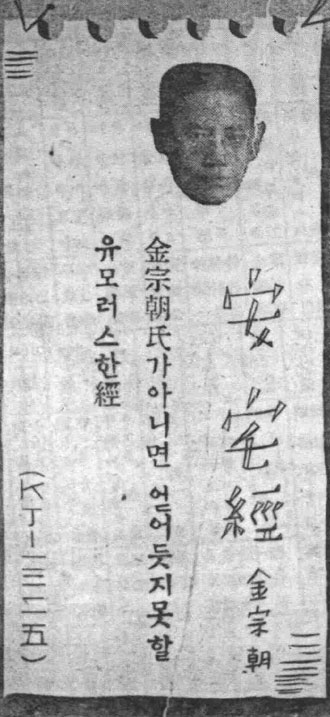 安宅經
金宗朝
金宗朝氏가아니면 얻어듯지못할
유모러스한經
(KJ—一三二五)